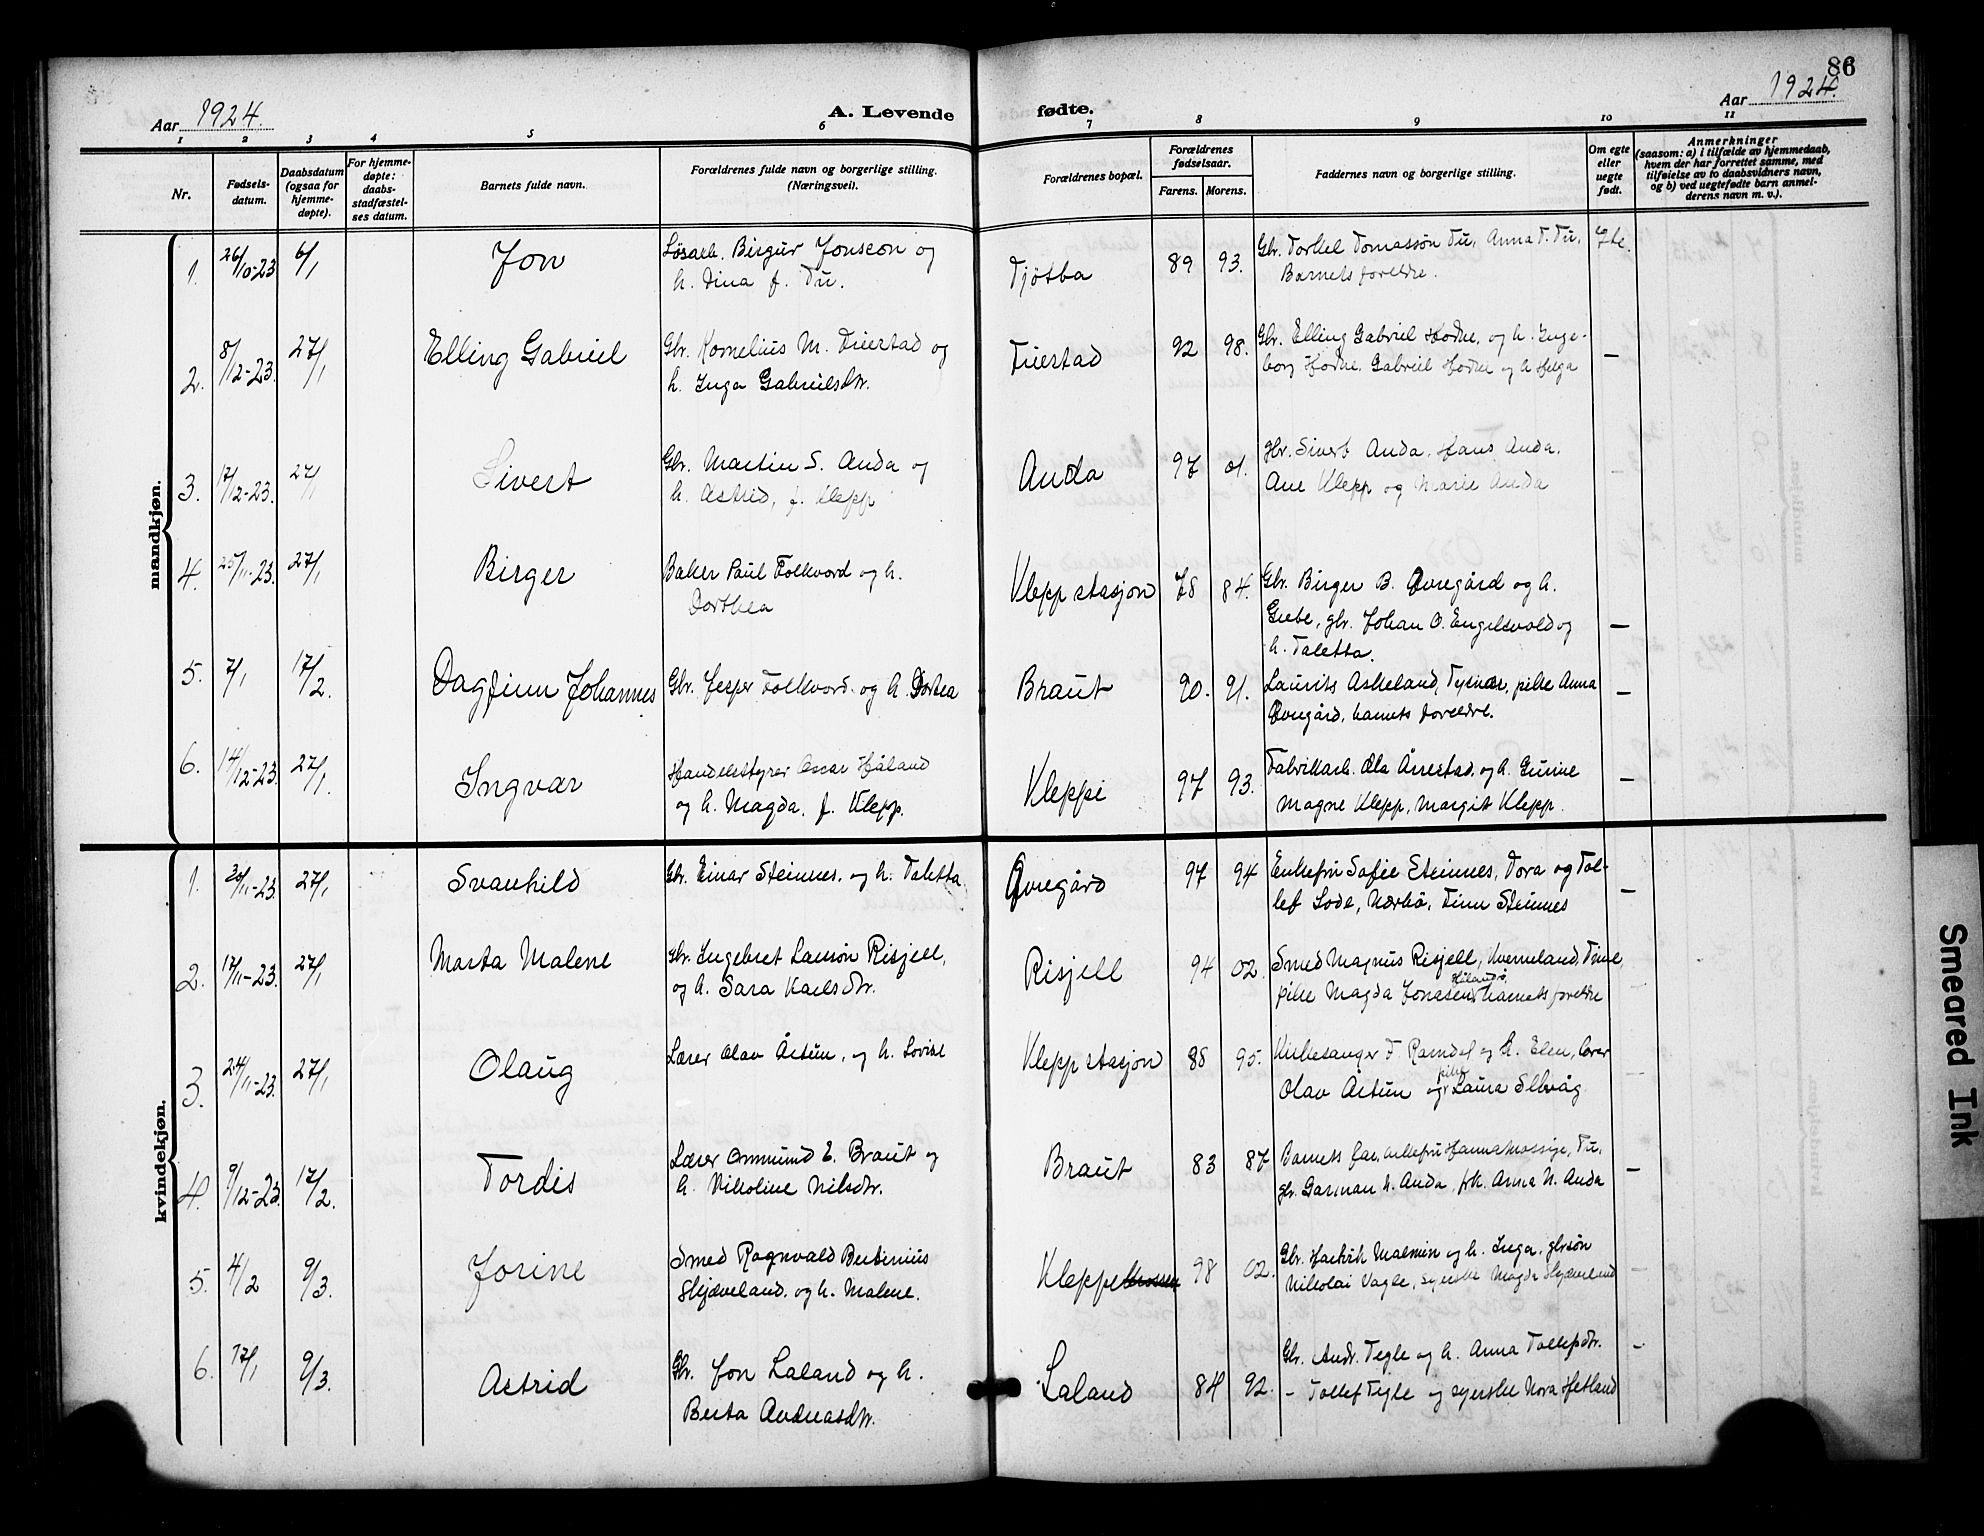 86
Aar 1924.
A. Levende
fødte.
Aar 1924.
1 2 3 4 5 6 7 8 9 10 11
Nr.
Fødsels-
datum.
Daabsdatum
(ogsaa for
hjemme-
døpte).
For hjemme-
døpte:
daabs-
stadfæstel-
ses datum.
Barnets fulde navn.
Forældrenes fulde navn og borgerlige stilling.
(Næringsvei).
Forældrenes bopæl.
Forældrenes
fødselsaar.
Farens. Morens.
Faddernes navn og borgerlige stilling.
Om egte
eller
uegte
født.
Anmerkninger
(saasom: a) i tilfælde av hjemmedaab,
hvem der har forrettet samme, med
tilføielse av to daabsvidners navn,
og b) ved uegtefødte barn anmel-
derens navn m. v.).
mandkjøn.
1. 26/10-23 6/1 Jon
Løsarb. Birgur Jonsson og
h. Dina f. Tu.
Tjøtba 89 93.
Gbr. Torkel Tomassøn Tu, Anna T. Tu,
Barnets foreldre.
2. 8/12-23. 27/1 Elling Gabriel
Gbr. Kornelius M. Tuestad og
h. Inga Gabrielsdtr.
Tuestad 92 98.
Gbr. Elling Gabriel Hodne, og h. Inge-
borg Hodne, Gabriel Hodne og h Helga
—
3. 17/12-23. 27/1 Sivert
Gbr. Martin S. Anda og
h. Astrid, f. Klepp
Anda 97 01.
gbr. Sivert Anda, Hans Anda,
Ane Klepp og Marie Anda
—
4. 25/11-23. 27/1 Birger
Baker Paul Folkvord og h.
Dorthea
Klepp stasjon 78 84.
Gbr. Birger B. Øvregård og h.
Grebe, gbr. Johan O. Engelsvold og
h. Taletta.
—
5. 7/1 17/2. Dagfinn Johannes
Gbr. Jesper Folkvord. og h. Dortea
Braut 90. 91.
Laurits Askeland, Tysnes, pike Anna
Øvregård, barnets foreldre.
—
6. 14/12-23. 27/1. Ingvar
Handelstyrer Oscar Håland
og h. Magda, f. Klepp.
Kleppe 97 93.
Fabrikkarb. Ola Årrestad. og h. Gurine
Magne Klepp, Margit Klepp.
—
kvindekjøn.
1. 30/11-23. 27/1 Svanhild
Gbr. Einar Steinnes, og h. Taletta
Øvregård 97 94
Enkefru Sofie Steinnes, Tora og Tol-
lef Lode, Nærbø, Finn Steinnes
—
2. 17/11-23. 27/1 Marta Malene
Gbr. Ingebret Larsøn Risjell,
og h. Sara Karlsdtr.
Risjell 94 02.
Smed Magnus Risjell, Kverneland, Time,
pike Magda Jonassen, barnets foreldre
3. 24/11-23. 27/1 Olaug
Lærer Olav Årtun, og h. Lovise
Klepp stasjon 88 95.
Kirkesanger F. Ramdal og h. Elen, lærer
Olav Årtun og pike Laura Selvåg
4. 9/12-23. 17/2. Tordis
Lærer Ommund E. Braut og
h. Nikoline Nilsdtr.
Braut 83 87
Barnets far, enkefru Hanna Mossige, Tu,
gbr. Garman N. Anda, frk. Anna N. Anda
—
5. 4/2 9/3. Jorine
Smed Ragnvald Bertinius
Skjæveland. og h. Malene.
Kleppekrossen 98 02.
Gbr. Hartvik Malmin og h. Inga, gbrsøn
Nikolai Vagle, syerske Magda Skjæveland
—
6. 17/1 9/3. Astrid
Gbr. Jon Laland og h.
Berta Andreasdtr.
Laland 84 92.
Gbr. Andr. Tegle og h. Anna Tollefsdtr.
- Tollef Tegle og syerske Nora Hetland
—
Smeared Ink